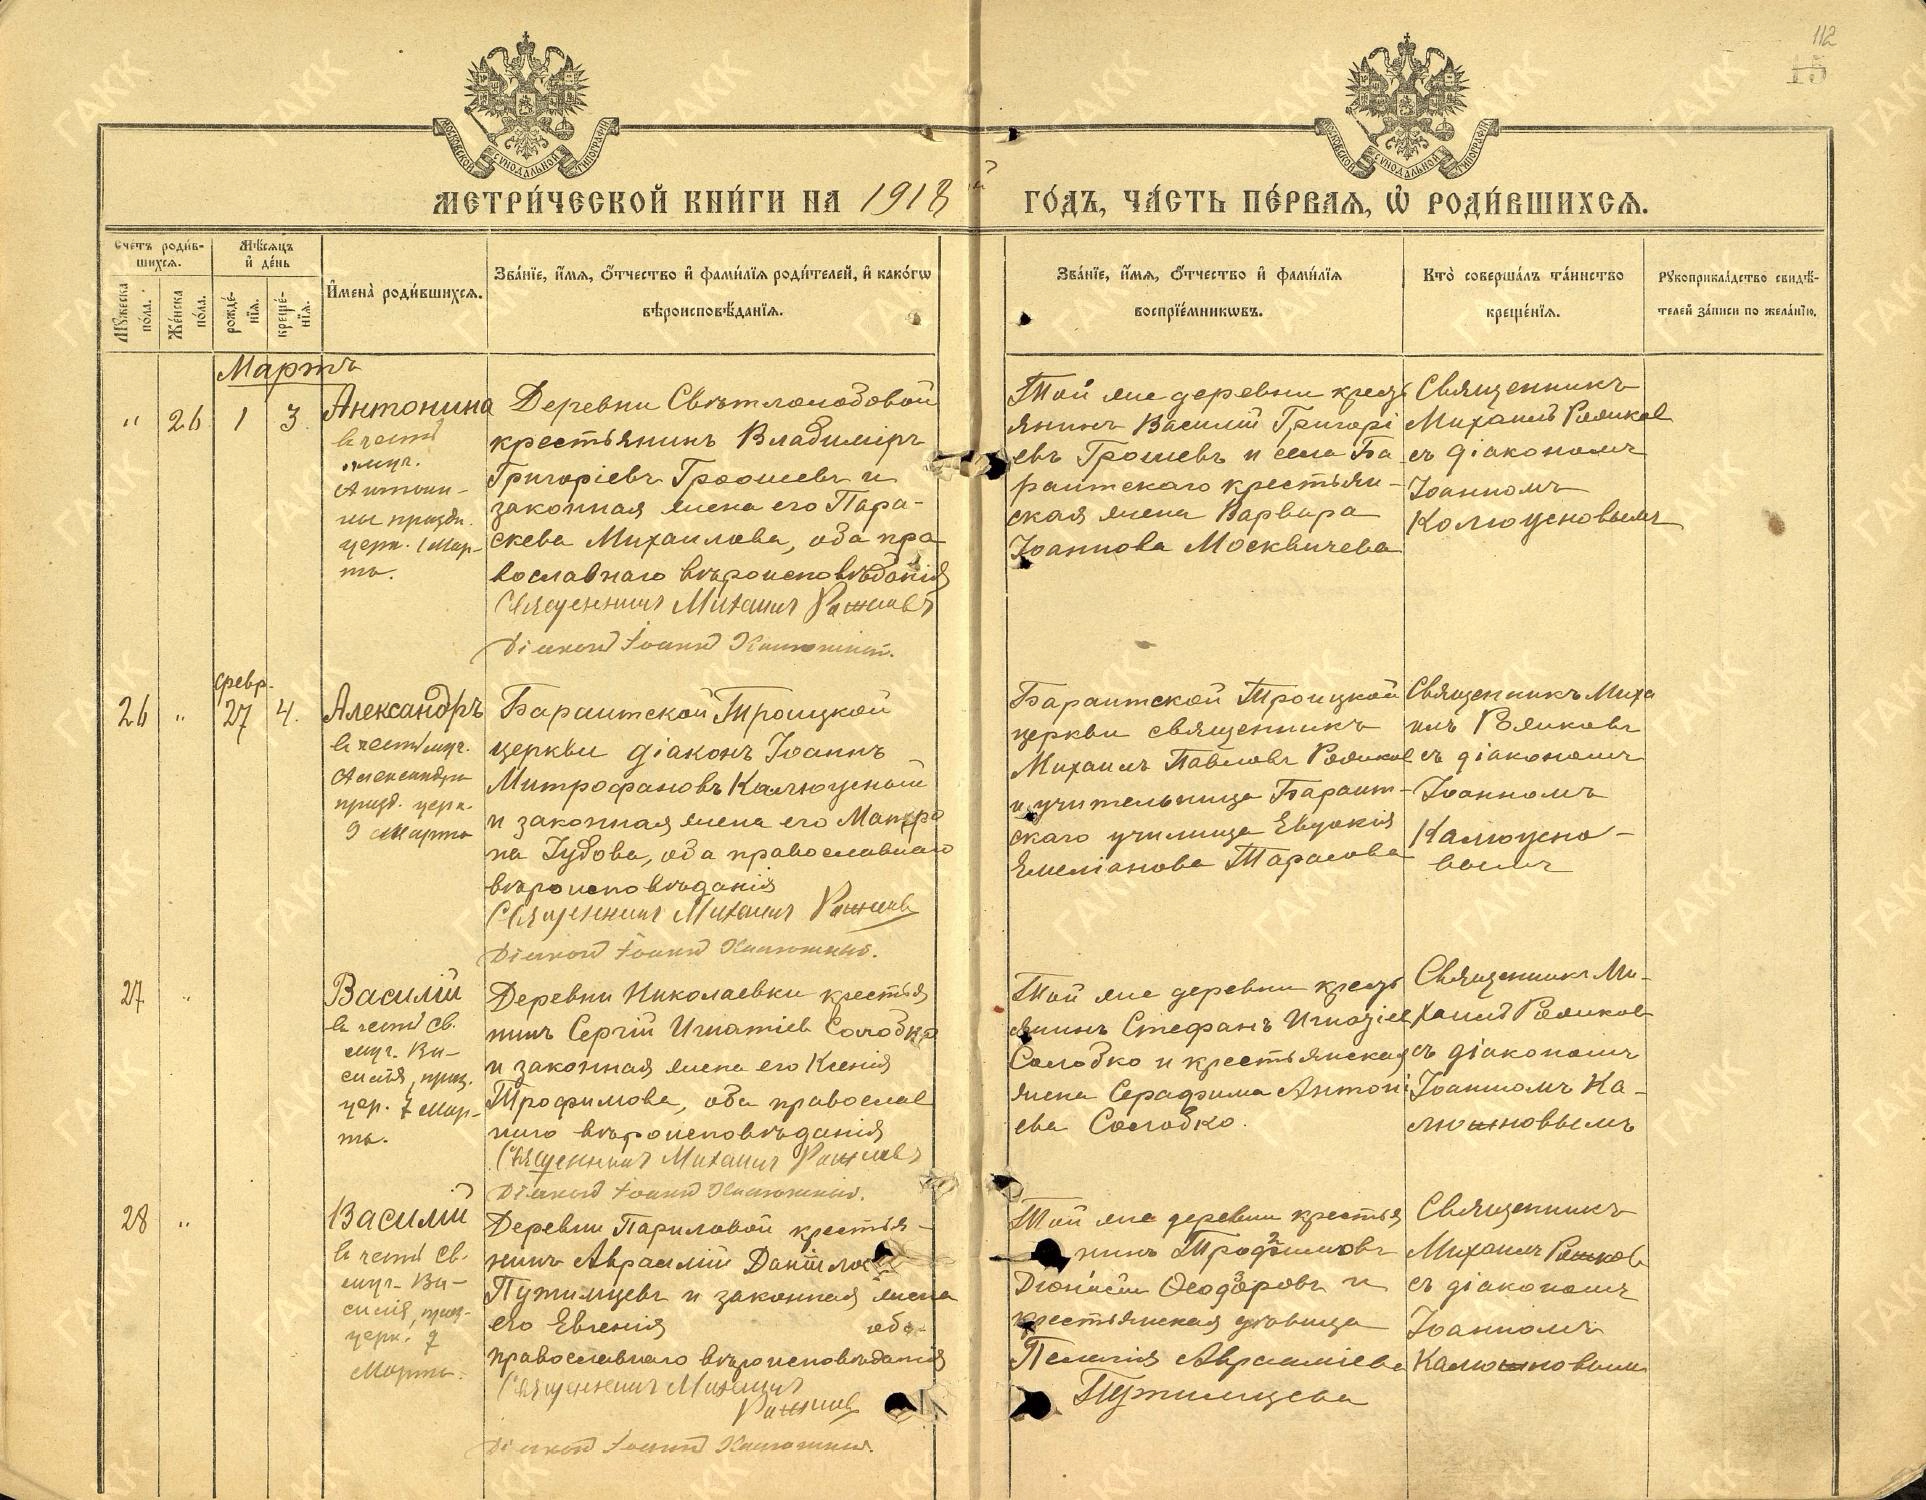 112
15
МОСКОВСКОЙ СѴНОДАЛЬНОЙ ТИПОГРАФІИ
МОСКОВСКОЙ СѴНОДАЛЬНОЙ ТИПОГРАФІИ
МЕТРИ́ЧЕСКОЙ КНИ́ГИ НА 1918 ГО́ДЪ, ЧА́СТЬ ПЕ́РВАЯ, Ѡ РОДИ́ВШИХСЯ.
Сче́тъ роди́в-
шихся.
Мѣ́сяцъ
и҆ де́нь
Мꙋ́жеска
по́ла.
Же́нска
по́ла.
рожде́-
нїя.
креще́-
нїя.
И҆мена̀ роди́вшихся.
Зва́нїе, и҆́мя, ѻ҆́тчество и҆ фами́лїя роди́телей, и҆ како́гѡ
вѣроисповѣ́данїя.
Зва́нїе, и҆́мя, ѻ҆́тчество и҆ фами́лїя
воспрїе́мникѡвъ.
Кто̀ соверша́лъ та́инство
креще́нїя.
Рꙋкоприкла́дство свидѣ́-
телей за́писи по жела́нїю.
Мартъ
" 26 1 3 Антонина
въ честь
муч.
Антони-
ны праздн.
церк. 1 Мар-
та.
Деревни Свѣтлолобовой
крестьянинъ Владиміръ
Григоріевъ Грошевъ и
законная жена его Пара-
скева Михаилова, оба пра
вославнаго вѣроисповѣданія
Священникъ Михаилъ
Діаконъ Іоаннъ
Той же деревни кресть
янинъ Василій Григорі
евъ Грошевъ и села Ба
раитскаго крестьян-
ская жена Варвара
Іоаннова Москвичева
Священникъ
Михаилъ
съ діакономъ
Іоанномъ
26 " февр.
27 4. Александръ
въ честь муч.
Александра
празд. церк.
9 Марта
Бараитской Троицкой
церкви діаконъ Іоаннъ
Митрофановъ
и законная жена его Матро
на Зубова, оба православнаго
вѣроисповѣданія
Священникъ Михаилъ
Діаконъ Іоаннъ
Бараитской Троицкой
церкви священникъ
Михаилъ Павловъ
и учительница Бараит-
скаго училища Евдокія
Емеліанова Тарасова
Священникъ Миха
илъ
съ діакономъ
Іоанномъ
27 " Василій
въ честь св.
муч. Ва-
силія, праз.
цер. 7 Мар-
та.
Деревни Николаевки крестья
нинъ Сергій Игнатіев Солодко
и законная жена его Ксенія
Трофимова, оба православ
наго вѣроисповѣданія
Священникъ Михаилъ
Діаконъ Іоаннъ
Той же деревни кресть
янинъ Стефанъ Игнатіев
Солодко и крестьянская
жена Серафима Антоні
ева Солодко.
Священникъ Ми-
хаилъ
съ діакономъ
Іоанномъ
28 " Василій
въ честь св.
муч. Ва-
силія, праз-
церк. 7
Марта.
Деревни Париловой крестья-
нинъ Авраамій Данило
Путимцевъ и законная жена
его Евгенія оба
православнаго вѣроисповѣданія
Священникъ Михаилъ
Діаконъ Іоаннъ
Той же деревни крестья
нинъ Трофимовъ
Діонисій Ѳеодоровъ и
крестьянская дѣвица
Пелагія Авраамiева
Путимцева
Священникъ
Михаилъ
съ діакономъ
Іоанномъ